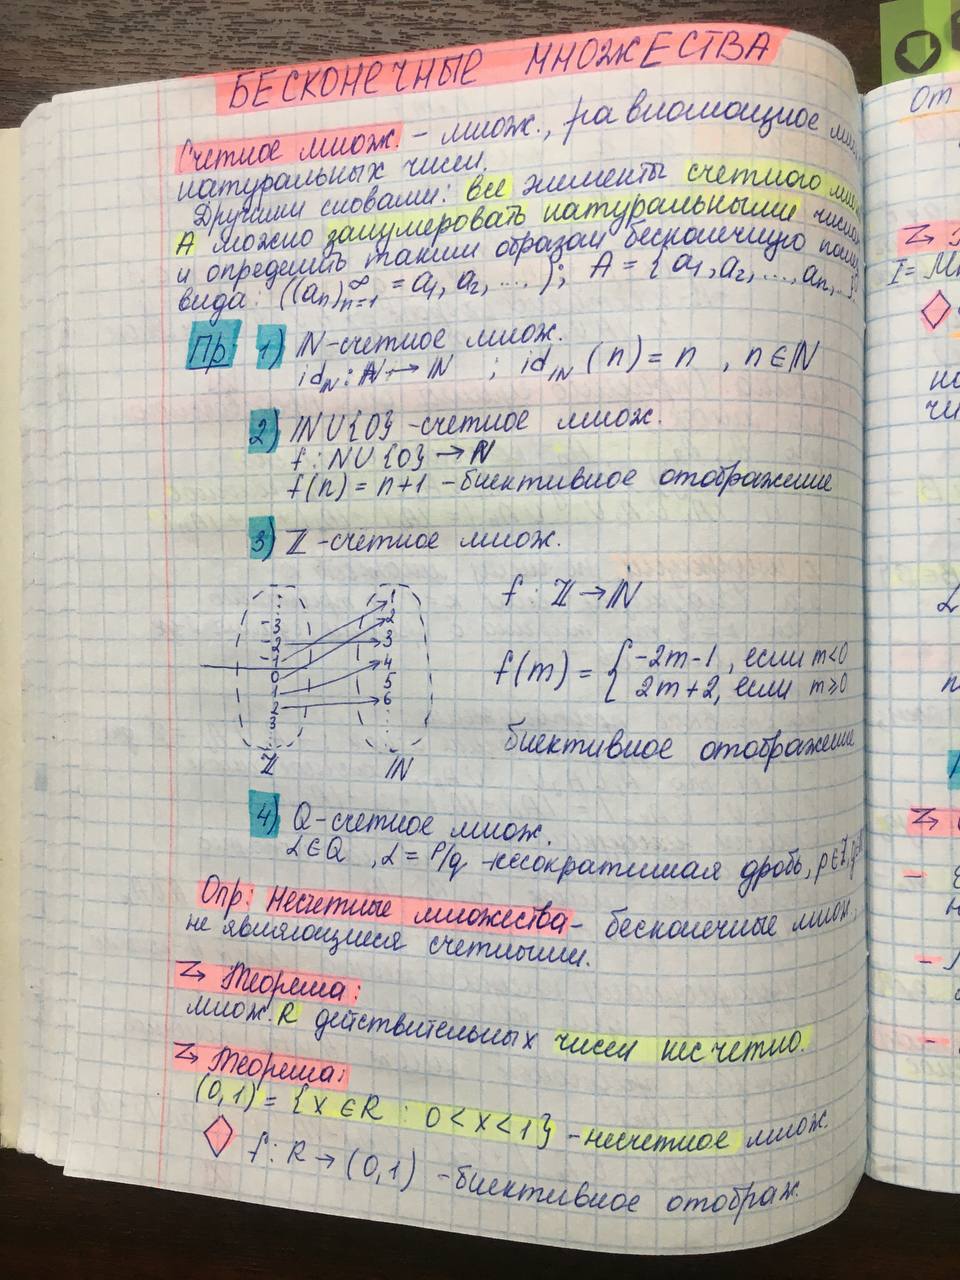 БЕСКОНЕЧНЫЕ МНОЖЕСТВА
Счетное множ. - множ., равномощное
натуральных чисел.
Другими словами: все элементы счетного
A можно занумеровать натуральными
и определить таким образом бесконечную
вида: ((aₙ)ₙ₌₁^∞ = a₁, a₂, ...); A = {a₁, a₂, ..., aₙ, ...}
Пр: 1) ℕ-счетное множ.
id_ℕ : ℕ → ℕ ; id_ℕ (n) = n , n ∈ ℕ
2) ℕ∪{0} -счетное множ.
f : ℕ∪{0} → ℕ
f(n) = n+1 -биективное отображение
3) ℤ-счетное множ.
f : ℤ → ℕ
f(m) = { -2m-1 , если m<0
2m+2, если m⩾0
биективное отображение
-3
-2
-1
0
1
2
3
ℤ
1
2
3
4
5
6
ℕ
4) Q-счетное множ.
α∈Q , α = p/q -несократимая дробь, p∈ℤ,
Опр: Несчетные множества- бесконечные множ.,
не являющиеся счетными.
Теорема:
множ. R действительных чисел несчетно.
Теорема:
(0,1) = {x ∈ R : 0 < x < 1} -несчетное множ.
f : R → (0,1) -биективное отображ.
От